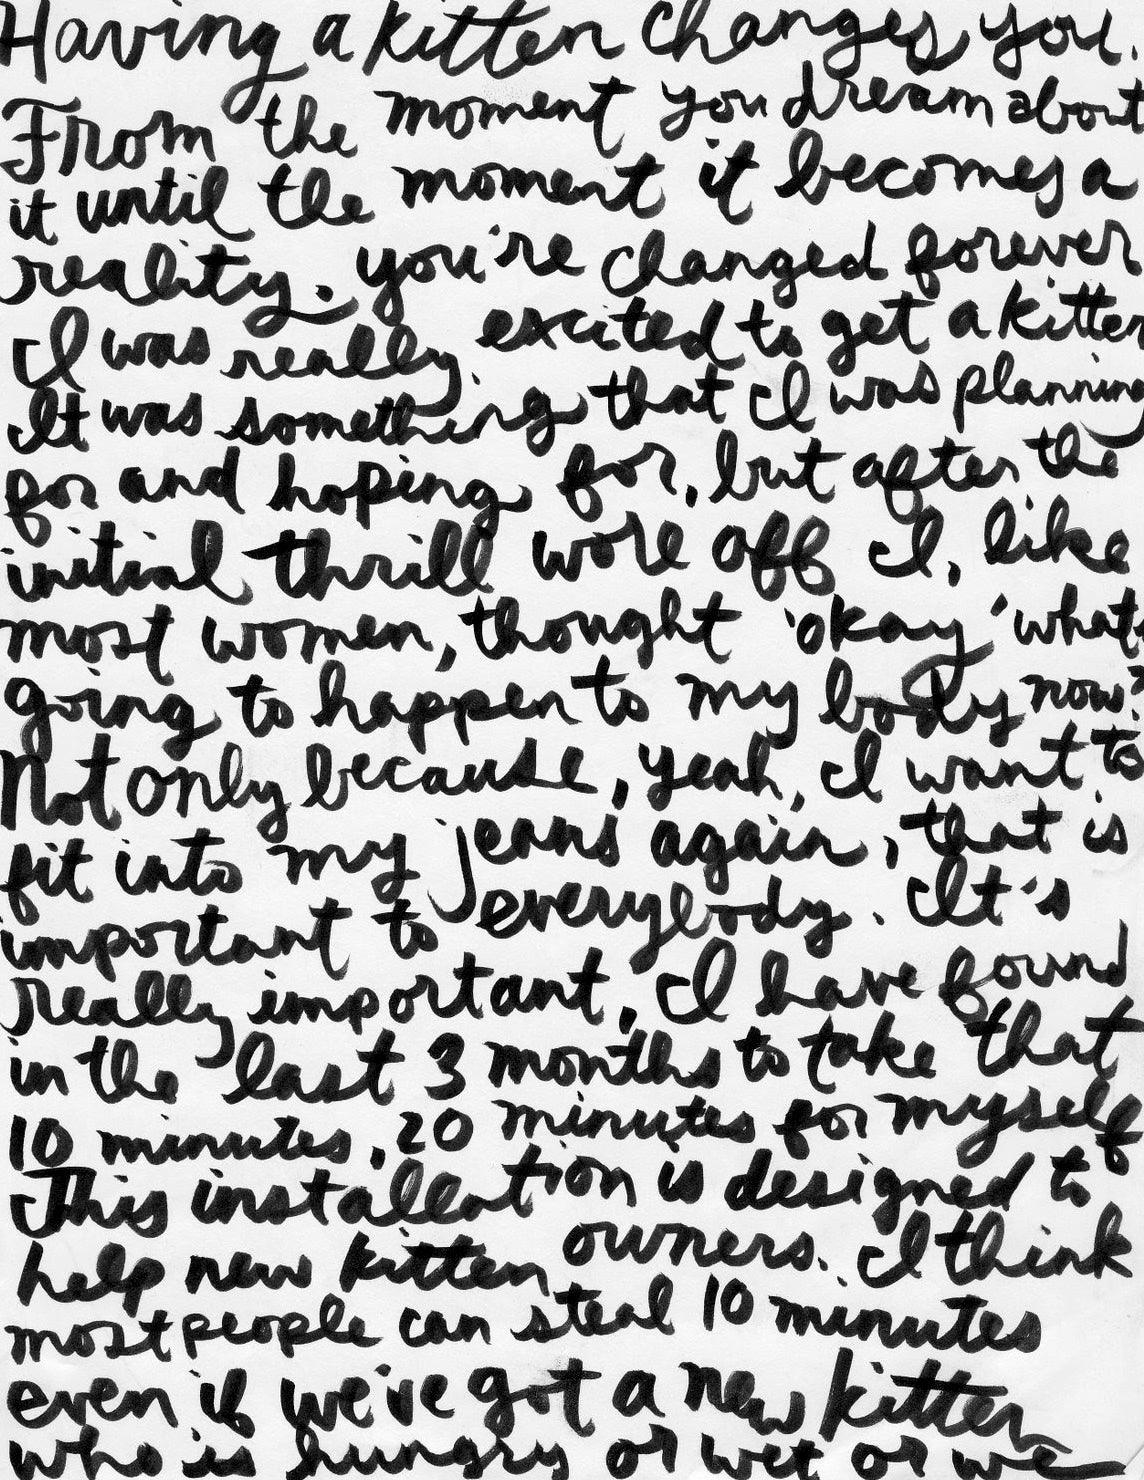 Having a kitten changes you.
From the moment you dream about
it until the moment it becomes a
reality. you're changed forever
I was really excited to get a kitten
It was something that I was planning
for and hoping for, but after the
initial thrill wore off I, like
most women, thought 'okay' what's
going to happen to my body now?
Not only because, yeah, I want to
fit into my jeans again, that is
important to everybody. It's
really important, I have found
in the last 3 months to take that
10 minutes, 20 minutes for myself
This installation is designed to
help new kitten owners. I think
most people can steal 10 minutes
even if we've got a new kitten
who is hungry or wet or we